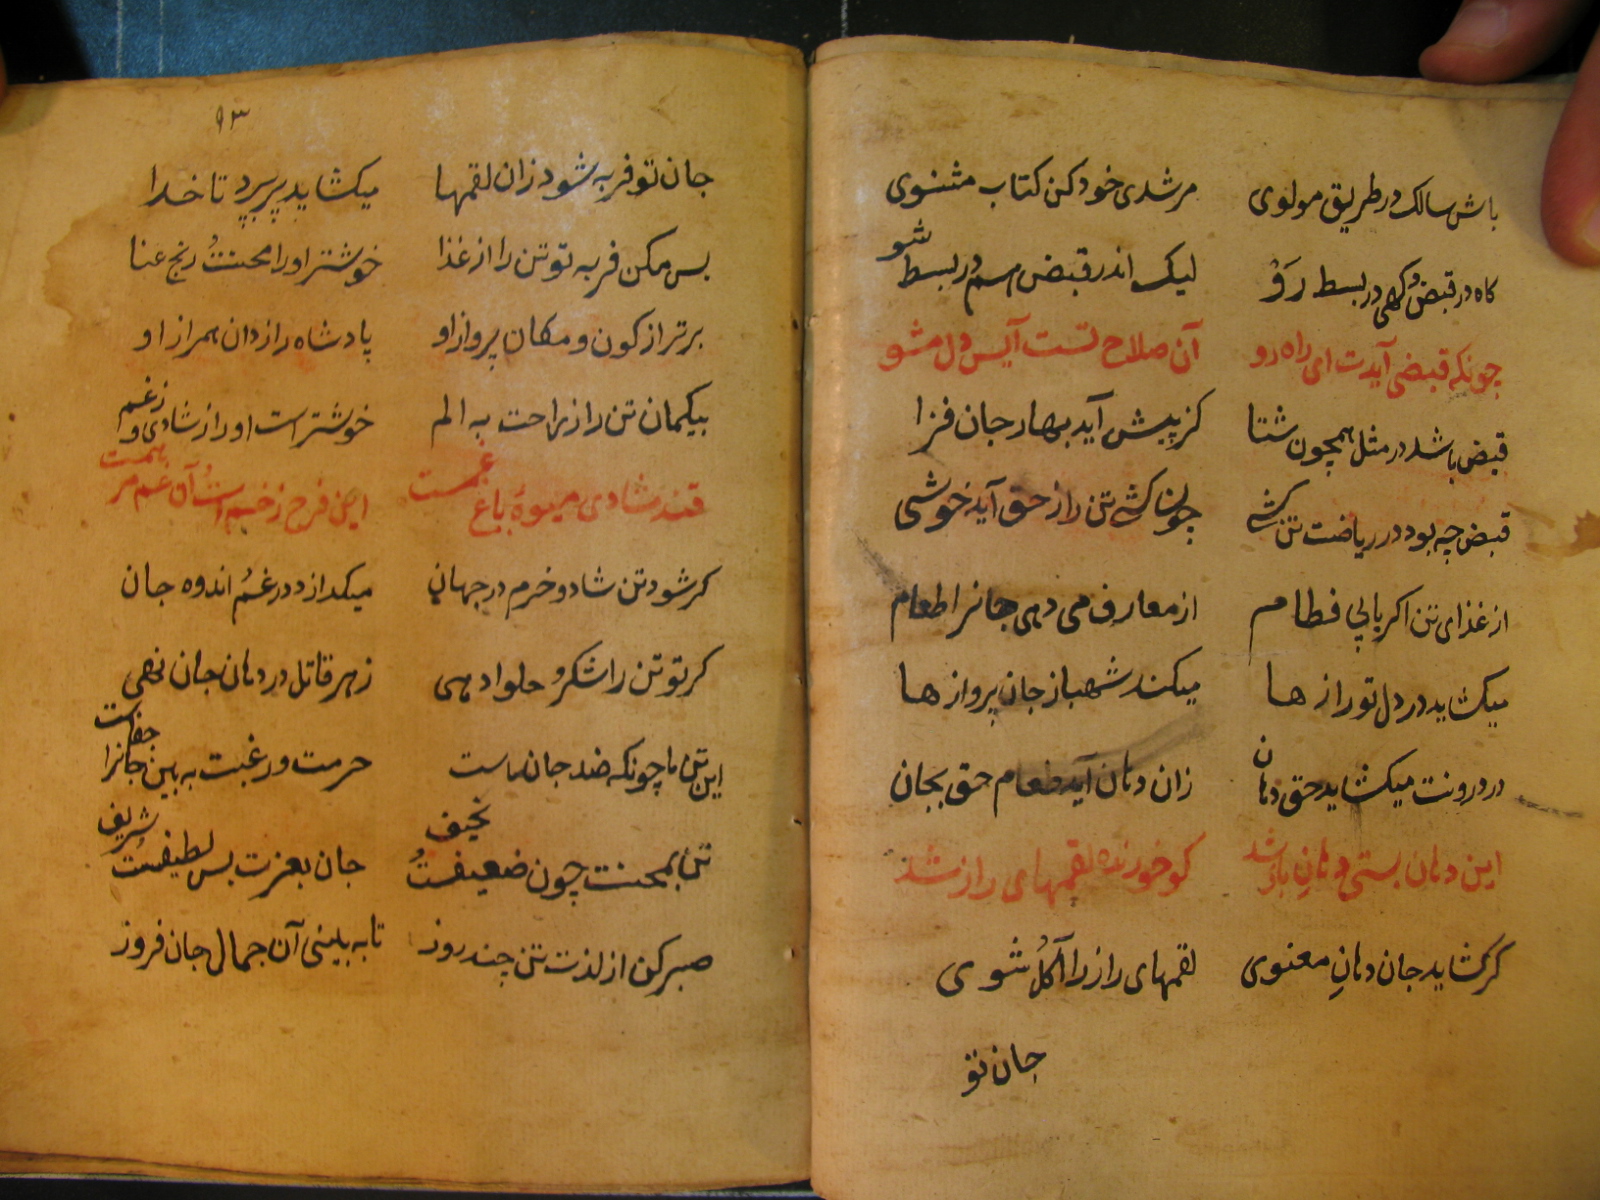 باش سالک در طریق مولوی مرشدی خود کن کتاب مثنوی
کاه در قبض و کهی در بسط رَوْ لیک اندر قبض هم در بسط شو
چونکه قبضی آیدت ای راه رو آن صلاح تست آیس دل مشو
قبض باشد در مثل همچون شتا کز پیش آید بهار جان فزا
قبض چه بود در ریاضت تن کشی چون کشی تن را ز حق آید خوشی
از غذای تن اکر یابی فطام از معارف می دهی جانرا طعام
میکشاید در دل تو راز ها میکند شهباز جان پرواز ها
در درونت میکشاید حق دهان زان دهان آید طعام حق بجان
این دهان بستی دهانِ باز شد کو خورنده لقمهای راز شد
کر کشاید جان دهانِ معنوی لقمهای راز را آکل شوی
جان تو
۹۳
جان تو فربه شود زان لقمها میکشاید پر پرد تا خدا
بس مکن فربه تو تن را از غذا خوشتر او را محنت رنج عنا
برتر از کون و مکان پرواز او پادشاه رازدان همراز او
بیکمان تن را ز راحت به الم خوشتر است او را ز شادی و ز غم
قند شادی میوهٔ باغ غمست این فرح زخم است آن غم مرهمست
کر شود تن شاد و خرم در جهان میکدازد در غم اندوه جان
کر تو تن را شکر و حلوا دهی زهر قاتل در دهان جان نهی
این تن ما چونکه ضد جان ماست حرمت و رغبت به بین جانرا جفاست
تن بمحنت چون ضعیفست نحیف جان بعزت بس لطیفست شریف
صبر کن از لذت تن چند روز تا به بینی آن جمال جان فروز